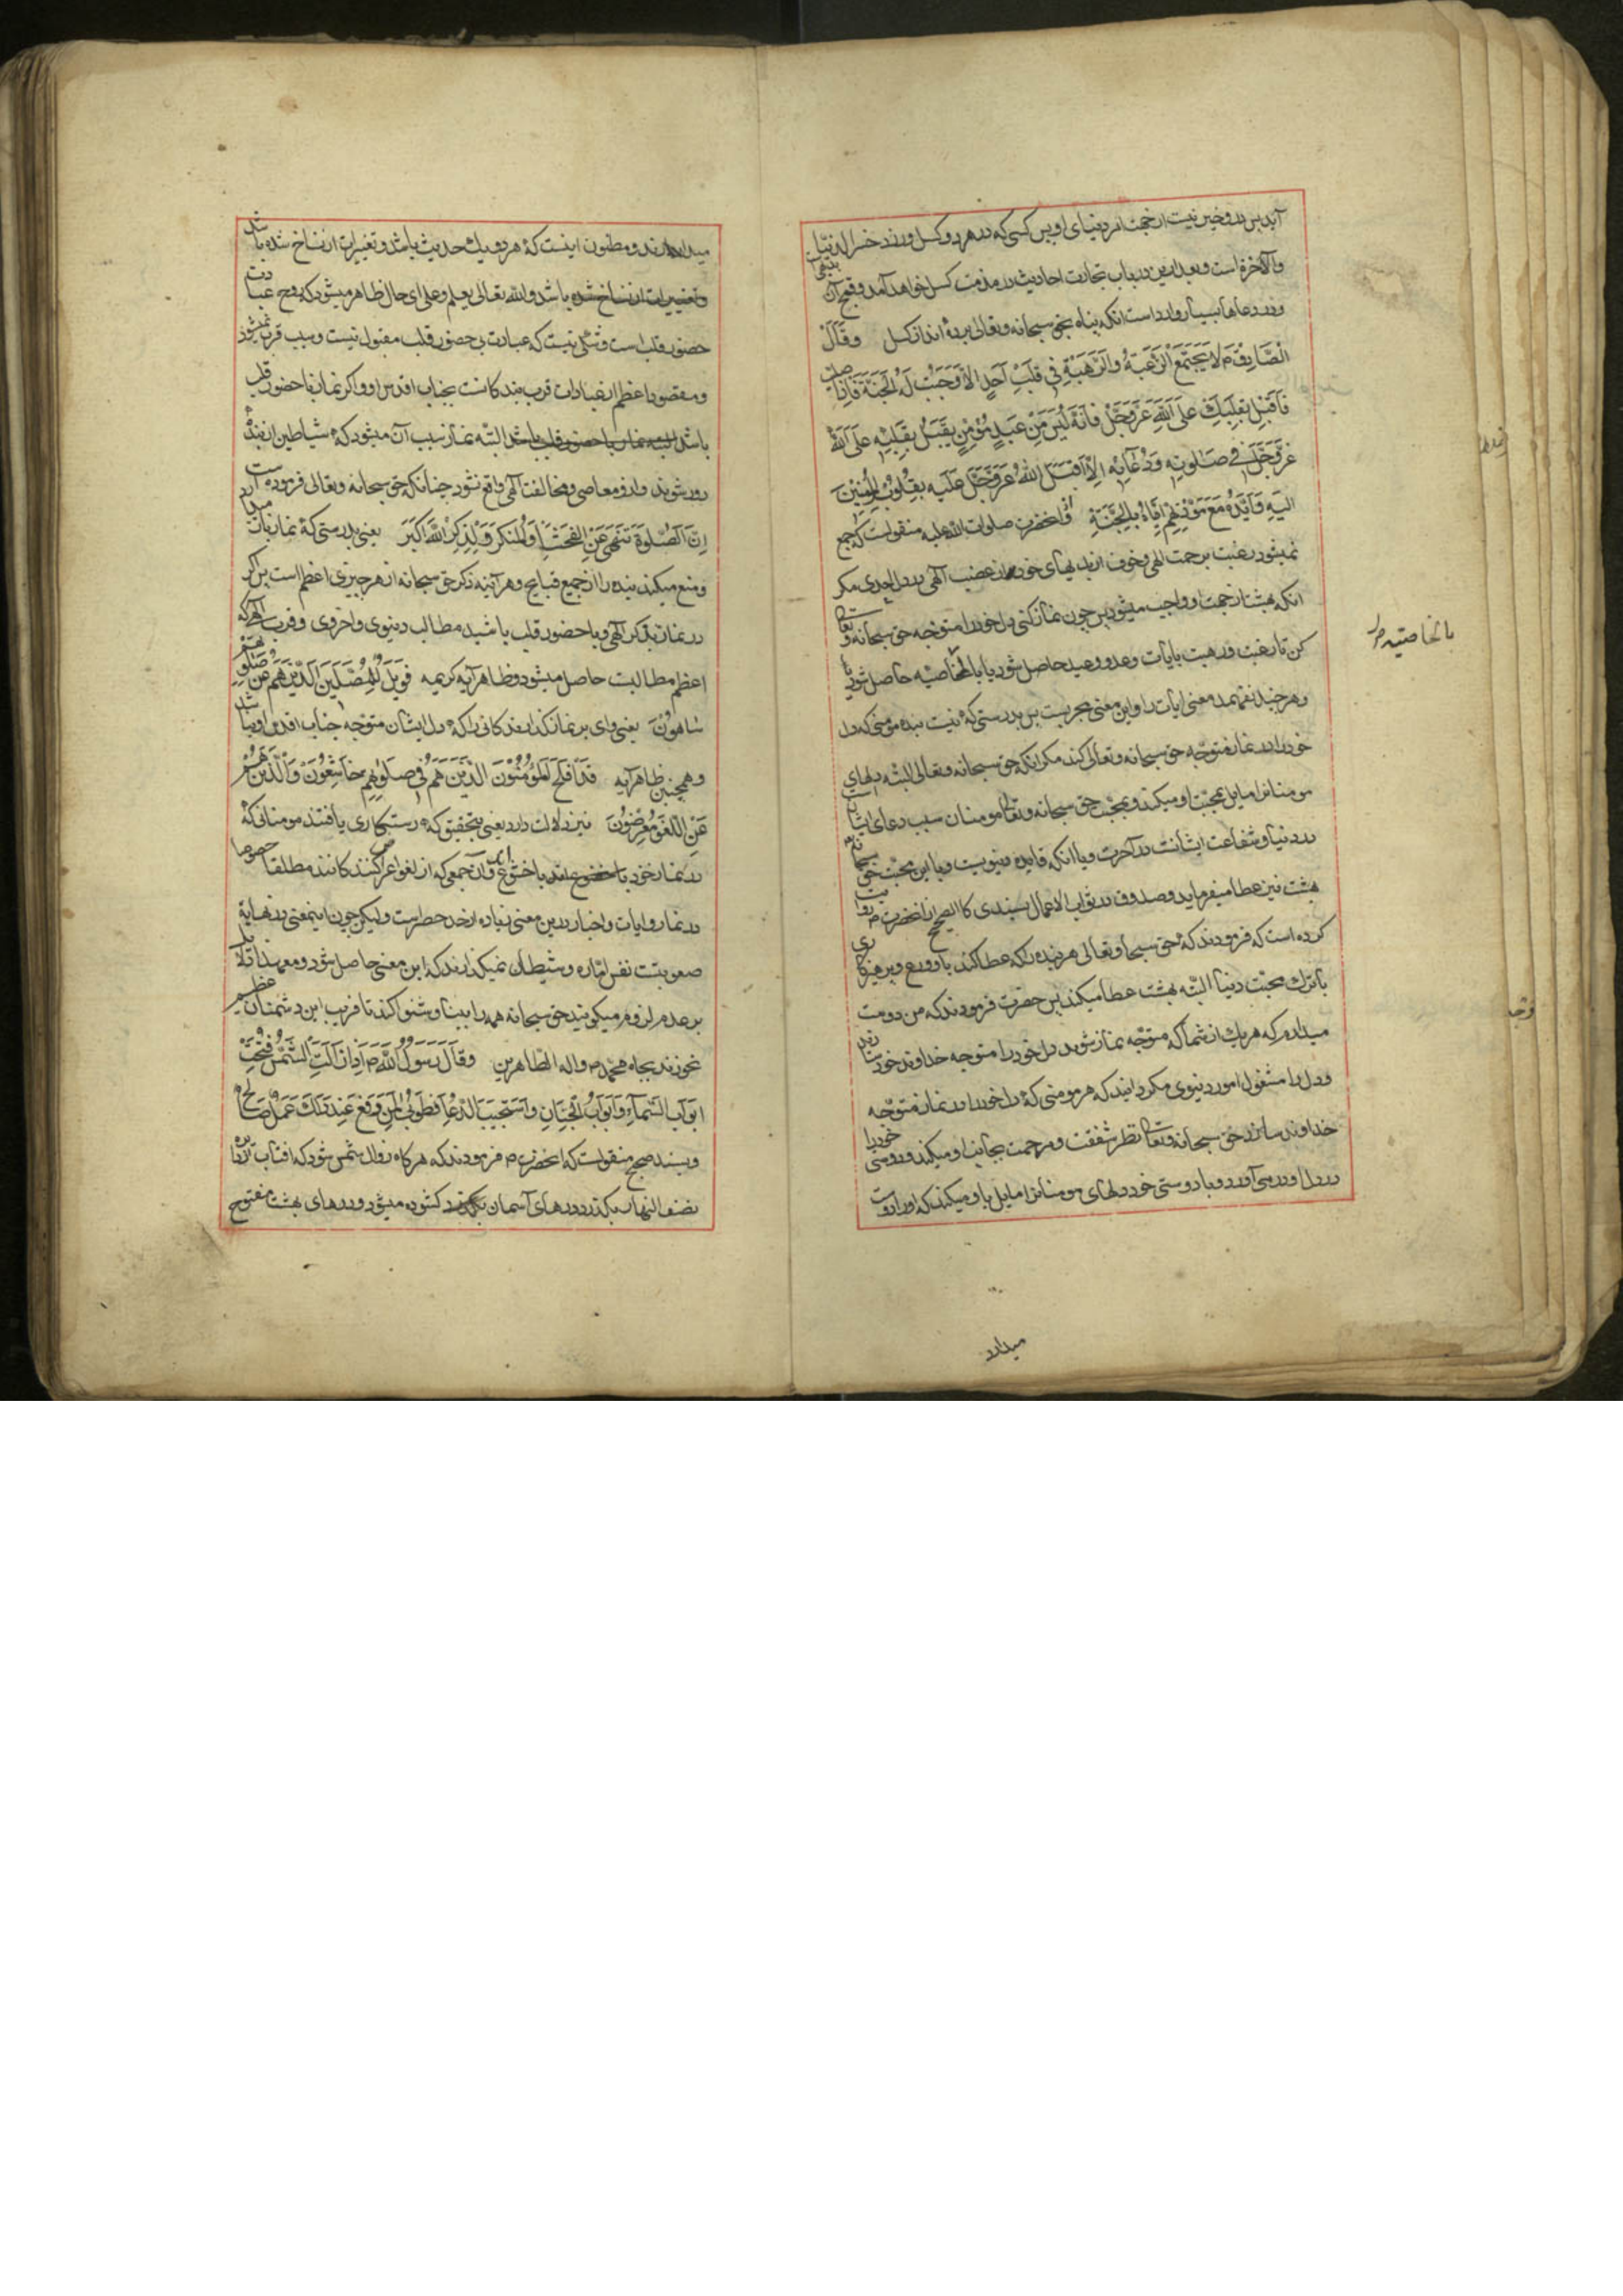 آید پس درو خیر نیست از جهت امر دنیای او پس کسی که در هر دو کسل ورزد خسر الدنیا
والآخرة است و بعد ازین در باب تجارت احادیث در مذمت کسل خواهد آمد و قبح آن بدیهی
و در دعاها بسیار وارد است انکه پناه بحق سبحانه و تعالی برده اند از کسل وقال
الصادق م لا یجتمع الرغبة والرهبة في قلب احد الا وجبت له الجنة فاذا صلیت
فاقبل بقلبک علی الله عز وجل فانه لیس من عبد مؤمن یقبل بقلبه علی الله
عز وجل في صلوته ودعائه الا اقبل الله عز وجل علیه بقلوب المؤمنین
الیه وایده مع مودتهم ایاه بالجنة و از انحضرت صلوات الله علیه منقولست که جمع
نمیشود رغبت برحمت الهی و خوف از بدیهای خود از غضب الهی در دل احدی مگر
انکه بهشت از جهت او واجب میشود پس چون نماز کنی دل خود را متوجه حق سبحانه و تعالی
کن تا رغبت و رهبت بایات وعد و وعید حاصل شود یا بالخاصیه حاصل شود
بالخاصیه
و هر چند نفهمد معنی ایات را و این معنی مجربست پس بدرستی که نیست بنده مومنی که دل
خود را در نماز متوجه حق سبحانه و تعالی کند مگر انکه حق سبحانه و تعالی البته دلهای
مومنانرا مایل بمحبت او میکند و بمحبت حق سبحانه و تعالی مومنان سبب دعای ایشان
در دنیا و شفاعت ایشانست در آخرت و با انکه فایده دنیویست و با این محبت حق سبحانه
بهشت نیز عطا میفرماید و صدوق در ثواب الاعمال بسندی کالصحیح از انحضرت م روایت
کرده است که فرمودند که حق سبحانه و تعالی هر بنده را که عطا کند باو ورع و پرهیزکاری
با ترک محبت دنیا البته بهشت عطا میکند پس حضرت فرمودند که من دوست
میدارم که هر یک از شما که متوجه نماز شوید دل خود را متوجه خداوند خود سازید
و دل را مشغول امور دنیوی مگردانید که هر مومنی که دل خود را در نماز متوجه
خداوند سازد حق سبحانه و تعالی نظر شفقت و مرحمت بجانب او میکند و دوستی خود را
در دل او در می آورد و با دوستی خود دلهای مومنانرا مایل باو میکند که او را دوست
میدارد
میدارند و مظنون اینست که هر دو یک حدیث باشد و تغییرات از نساخ شده باشد
و تغییرات از نساخ شده باشد والله تعالی یعلم و علی ای حال ظاهر میشود که روح عبادت
حضور قلب است و شکی نیست که عبادت بی حضور قلب مقبول نیست و سبب قرب نمیشود
و مقصود اعظم از عبادات قرب بندکانست بجناب اقدس او و اکر نماز با حضور قلب
باشد البته نماز با حضور قلب باشد البته نماز سبب آن میشود که شیاطین از بنده
دور شوند و ازو معاصی و مخالفت الهی واقع نشود چنانکه حق سبحانه و تعالی فرموده است
ان الصلوة تنهی عن الفحشاء والمنکر ولذکر الله اکبر یعنی بدرستی که نماز باز میدارد
و منع میکند بنده را از جمیع قبایح و هر آینه ذکر حق سبحانه از هر چیزی اعظم است پس اکر
در نماز بذکر الهی و با حضور قلب باشید مطالب دنیوی و اخروی و قرب الهی که
اعظم مطالبست حاصل میشود و ظاهر آیه کریمه فویل للمصلین الذین هم عن صلوتهم
ساهون یعنی وای بر نماز کذارندکانی را که دل ایشان متوجه جناب اقدس او نباشد
و همچنین ظاهر آیه قد افلح المؤمنون الذین هم في صلوتهم خاشعون والذین هم
عن اللغو معرضون نیز دلالت دارد یعنی بتحقیق که رستکاری یافتند مومنانی که
در نماز خود با خضوع اند با خشوع اند و آن جمعی که از لغو اعراض کنند کانند مطلقا خصوصا
در نماز و ایات و اخبار درین معنی زیاده از حد حصر است و لیکن چون اینمعنی در نهایة
صعوبتست نفس اماره و شیطان نمیکذارند که این معنی حاصل شود و معهذا دلایل
بر عدم لزوم میکویند حق سبحانه همه را بینا و شنوا کند تا فریب این دشمنان عظیم
نخورند بجاه محمد م واله الطاهرین وقال رسول الله م اذا زالت الشمس فتحت
ابواب السماء وابواب الجنان واستجیب الدعاء فطوبی لمن رفع عند ذلک عمل صالح
و بسند صحیح منقولست که انحضرت م فرمودند که هر کاه زوال شمس شود که افتاب از دائره
نصف النهار بکذرد درهای آسمان کشوده میشود و درهای بهشت مفتوح